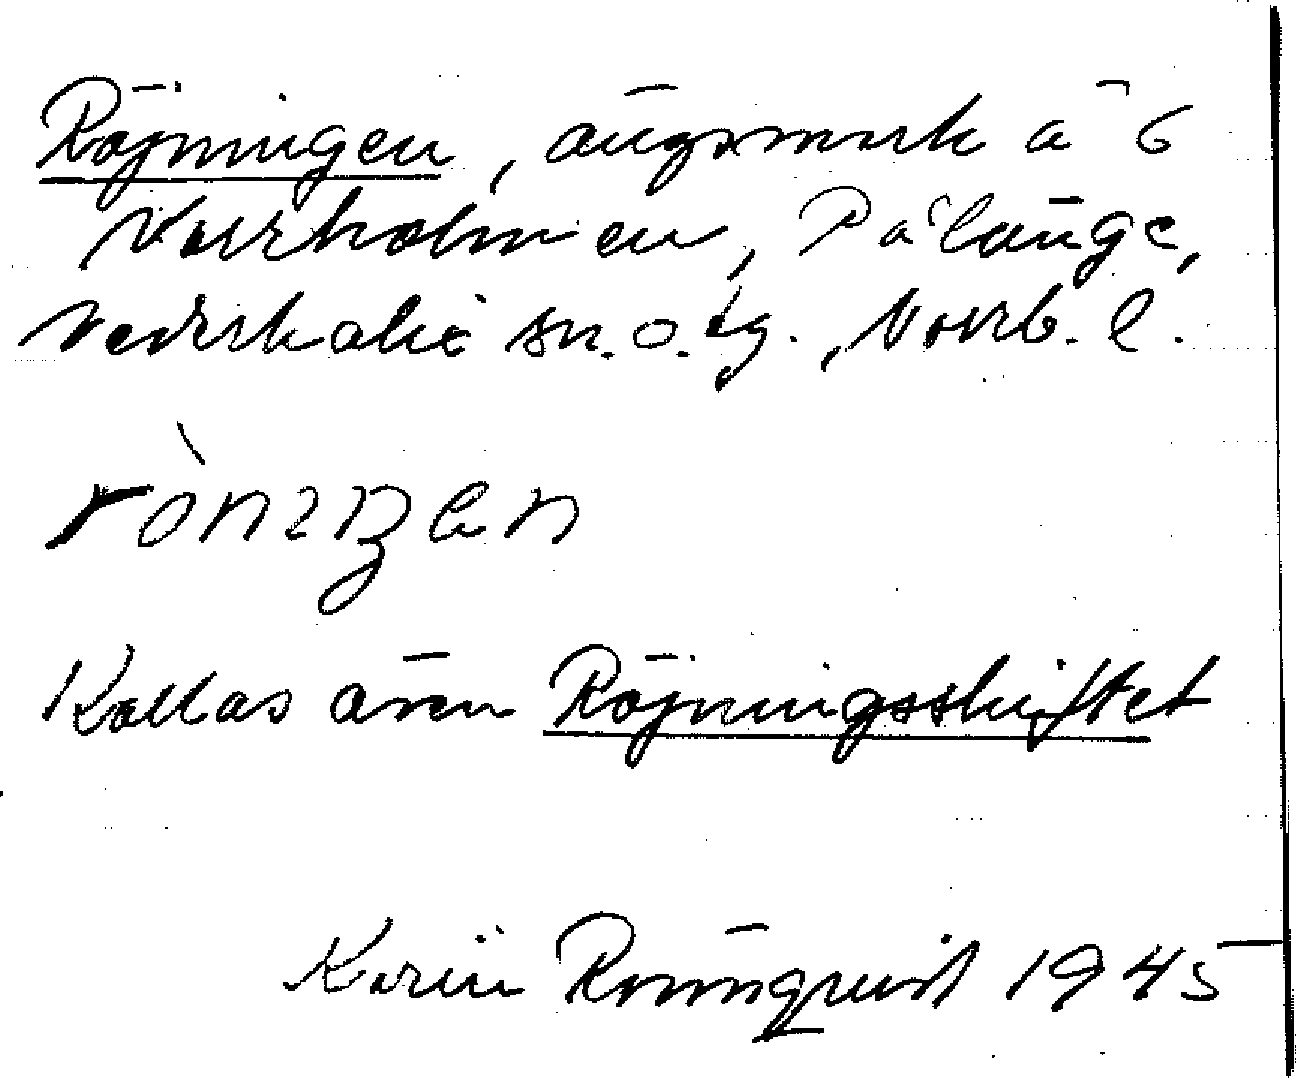 Röjningen, ängsmark å 6
Norrholmen, Pålänge,
Nederkalix sn. o. tg., Norrb. l.
rönıŋen
Kallas även Röjningsskiftet
Karin Rönnquist 1945